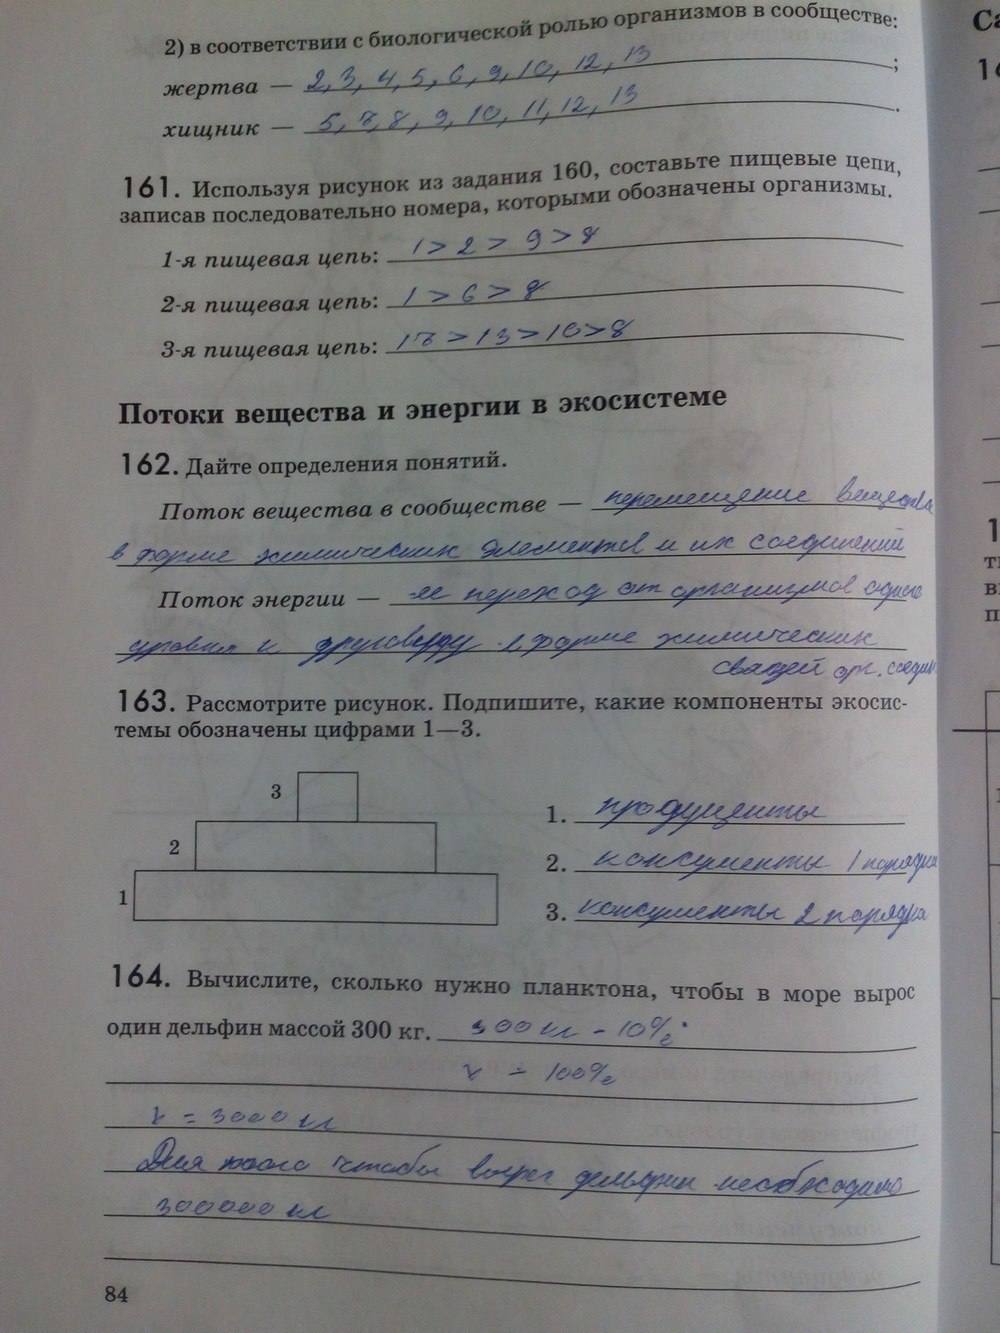 2) в соответствии с биологической ролью организмов в сообществе:
жертва — 2, 3, 4, 5, 6, 9, 10, 12, 13 ;
хищник — 5, 7, 8, 9, 10, 11, 12, 13 .
161. Используя рисунок из задания 160, составьте пищевые цепи,
записав последовательно номера, которыми обозначены организмы.
1-я пищевая цепь: 1 > 2 > 9 > 8
2-я пищевая цепь: 1 > 6 > 8
3-я пищевая цепь: > 13 > 10 > 8
Потоки вещества и энергии в экосистеме
162. Дайте определения понятий.
Поток вещества в сообществе — перемещение вещества
в форме химических элементов и их соединений
Поток энергии — ее переход от организмов одного
уровня к другому в форме химических
связей орг. соедин
163. Рассмотрите рисунок. Подпишите, какие компоненты экосис-
темы обозначены цифрами 1—3.
3
2
1
1. продуценты
2. консументы 1 порядка
3. консументы 2 порядка
164. Вычислите, сколько нужно планктона, чтобы в море вырос
один дельфин массой 300 кг. 300 кг - 10%
x - 100%
x = 3000 кг
Для того чтобы вырос дельфин необходимо
300000 кг
84
Са